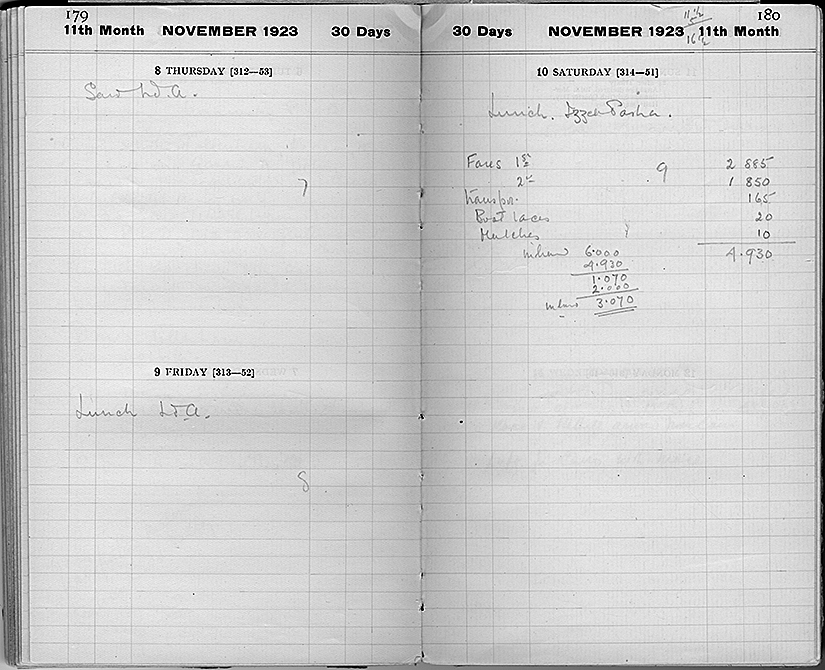 179
11th Month NOVEMBER 1923 30 Days
8 THURSDAY [312—53]
Saw Ld. A.
7
9 FRIDAY [313—52]
Lunch Ld. A.
8
180
30 Days NOVEMBER 1923 11th Month
16½
10 SATURDAY [314—51]
Lunch. Izzet Pasha.
Fares 1st 9 2 885
2nd 1 850
Transpor. 165
Boot laces 20
Matches 10
in hand 6.000 4.930
4.930
1.070
2.000
3.070